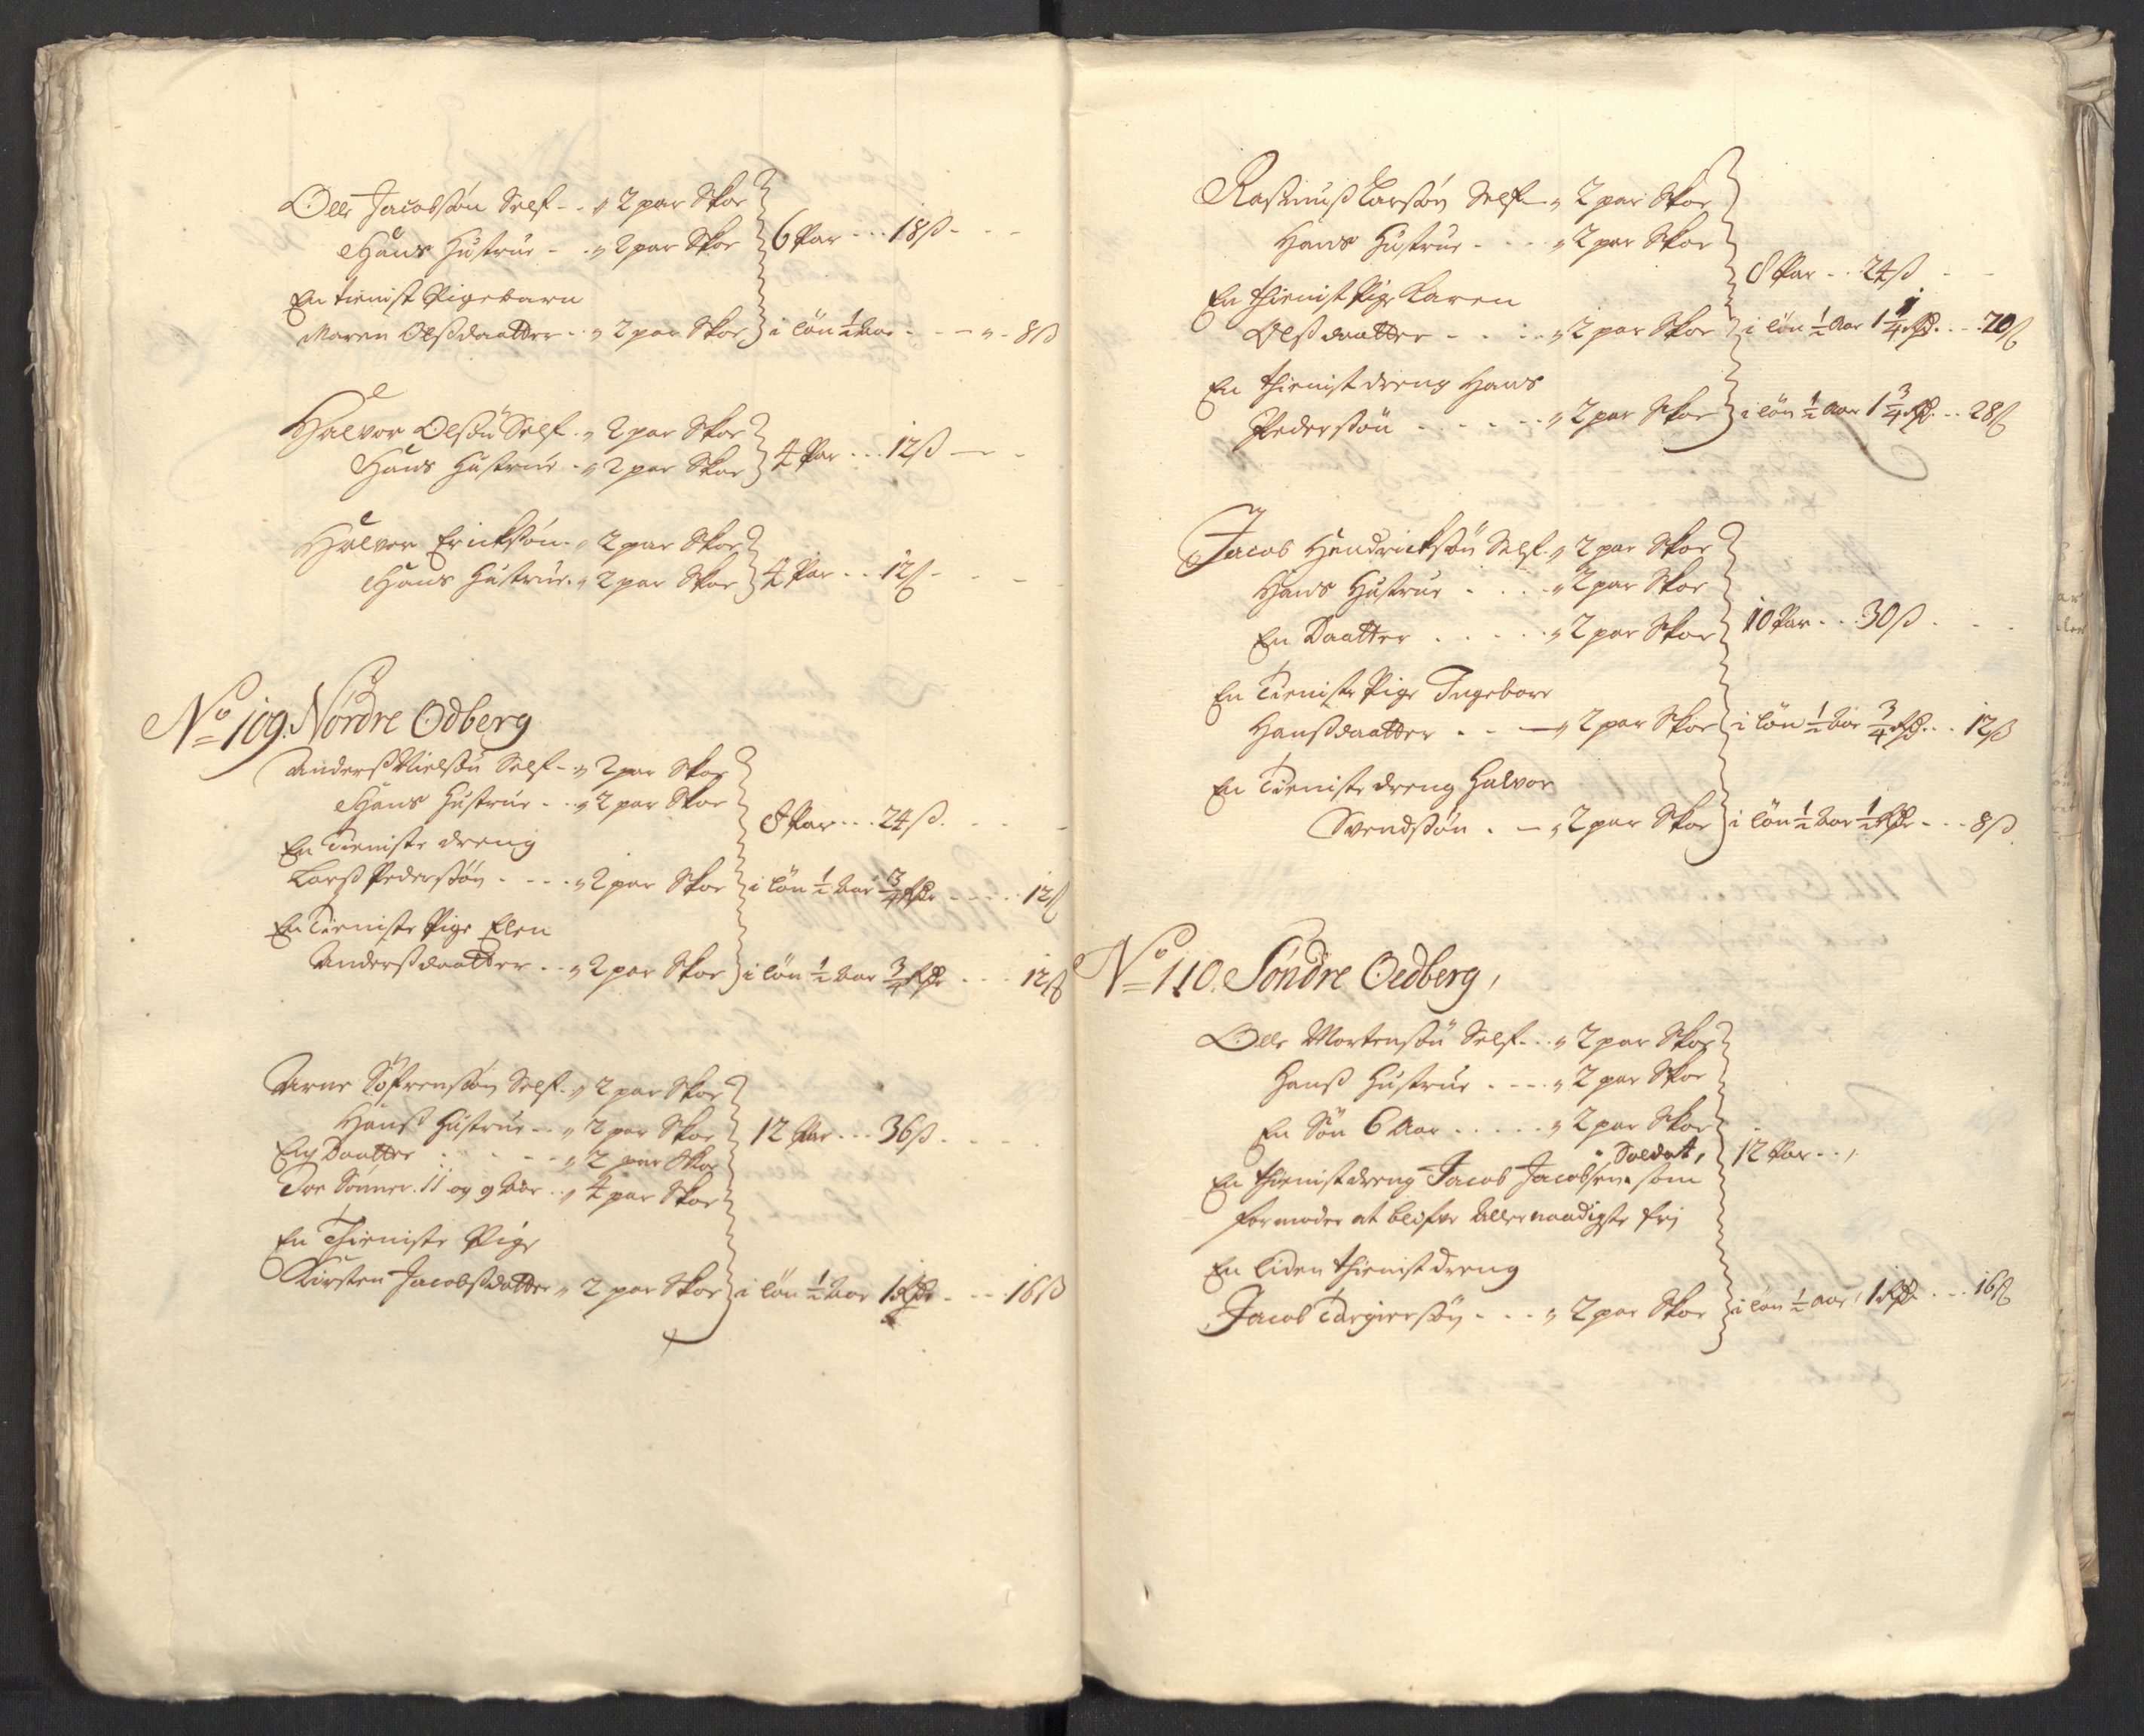 Olle Jacobsøn Self - - „ 2 par Skoe
Hans Hustrue - - „ 2 par Skoe } 6 Par - - - 18 ß - - -
En tienist Pigebarn
Maren Olsdaatter - - „ 2 par Skoe } i løn ½ Aar - - - „ - 8 ß
Halvor Olsøn Self - „ 2 par Skoe
Hans Hustrue - „ 2 par Skoe } 4 Par - - - 12 ß - -
Halvor Erichsøn - „ 2 par Skoe
Hans Hustrue - „ 2 par Skoe } 4 Par - - 12 ß - - - -
No 109. Nordre Odberg
Anderß Nielsøn Self - „ 2 par Skoe
Hans Hustrue - - „ 2 par Skoe
8 Par - - - 24 ß - - -
En Tieniste dreng
Larß Pedersøn - - - „ 2 par Skoe } i løn ½ Aar ¾ Rdr - - - - 12 ß
En Tieniste Pige Elen
Andersdaatter - - „ 2 par Skoe } i løn ½ Aar ¾ Rdr - - - 12 ß
Arne Søfrensøn Self - „ 2 par Skoe
Hans Hustrue - - „ 2 par Skoe } 12 Par - - - 36 ß - - - -
En Daatter - - - - „ 2 par Skoe
Toe Sønner 11 og 9 Aar - - „ 4 par Skoe
En Thieniste Pige
Kirsten Jacobsdatter „ 2 par Skoe } i løn ½ Aar 1 Rdr - - - 16 ß
Rasmuß Larsøn Self - „ 2 par Skoe
Hans Hustrue - - - „ 2 par Skoe
8 Par - - 24 ß - -
En thienist Pige Karen
Olsdaatter - - - - „ 2 par Skoe } i løn ½ Aar 1 ¼ Rdr - - - 20 ß
En thienist dreng Hans
Pedersøn - - - - - „ 2 par Skoe } i løn ½ Aar 1 ¾ Rdr - - 28 ß
Jacob Hendrichsøn Self - „ 2 par Skoe
Hans Hustrue - - - - „ 2 par Skoe
En Daatter - - - - - „ 2 par Skoe } 10 Par - - - 30 ß - - -
En Tieniste Pige Ingebore
Hansdaatter - - - „ 2 par Skoe } i løn ½ Aar ¾ Rdr - - 12 ß
En Tieniste dreng Halvor
Svendsøn - - „ 2 par Skoe } i løn ½ Aar ½ Rdr - - - 8 ß
No 110. Søndre Oedberg,
Olle Mortensøn Self - - „ 2 par Skoe
Hanß Hustrue - - - „ 2 par Skoe
En Søn 6 Aar - - - - - „ 2 par Skoe
Soldat, 12 Par - - ,
En thienist dreng Jacob Jacobsen som
formoder at blifve Allernaadigste frj
En liden thienist dreng
Jacob Torgiersøn - - - „ 2 par Skoe } i løn ½ Aar, 1 Rdr - - - 16 ß